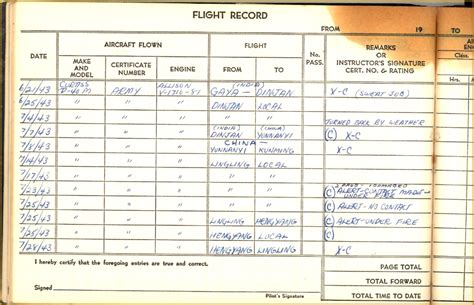 FLIGHT RECORD
FROM 19 TO
DATE AIRCRAFT FLOWN FLIGHT No. PASS. REMARKS OR INSTRUCTOR'S SIGNATURE CERT. NO. & RATING
MAKE AND MODEL CERTIFICATE NUMBER ENGINE FROM TO
6/21/43 CURTISS P-40M ARMY ALLISON GAYA — (INDIA) DINJAN X-C (SWEAT JOB)
6/25/43 " " " DINJAN LOCAL
7/4/43 " " " " " TURNED BACK BY WEATHER
7/7/43 " " " (INDIA) DINJAN (CHINA) YUNNANYI (C) X-C
7/8/43 " " " — CHINA — YUNNANYI KUNMING X-C
7/14/43 " " " LINGLING LOCAL
7/17/43 " " " " "
7/23/43 " " " " " (C) ALERT-CONTACT MADE- UNDER FIRE
7/25/43 " " " " " (C) ALERT-NO CONTACT
7/25/43 " " " LINGLING HENGYANG (C) ALERT-UNDER FIRE
7/25/43 " " " HENGYANG LOCAL (C)
7/28/43 " " " HENGYANG LINGLING X-C
I hereby certify that the foregoing entries are true and correct.
PAGE TOTAL
TOTAL FORWARD
Signed Pilot's Signature TOTAL TIME TO DATE